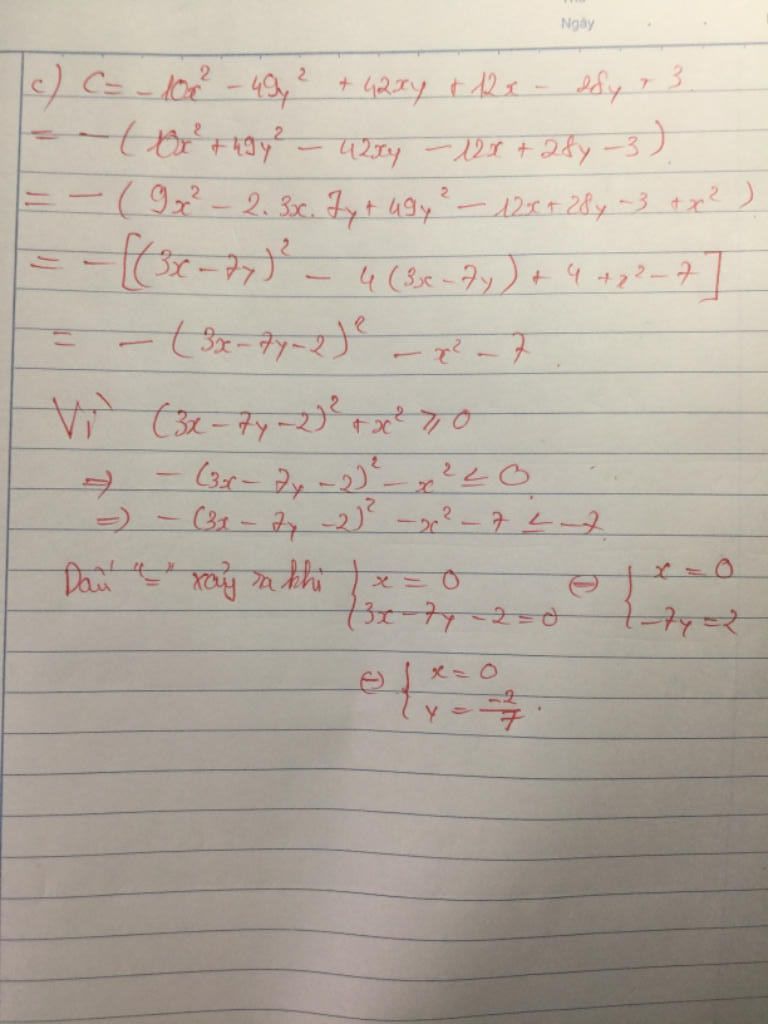 Ngày
c) C = -10x² - 49y² + 42xy + 12x - 28y + 3
= -(10x² + 49y² - 42xy - 12x + 28y - 3)
= -(9x² - 2.3x.7y + 49y² - 12x + 28y - 3 + x²)
= -[(3x - 7y)² - 4(3x - 7y) + 4 + x² - 7]
= -(3x - 7y - 2)² - x² - 7
Vì (3x - 7y - 2)² + x² ≥ 0
⇒ -(3x - 7y - 2)² - x² ≤ 0
⇒ -(3x - 7y - 2)² - x² - 7 ≤ -7
Dấu "=" xảy ra khi { x = 0 ⇔ { x = 0
3x - 7y - 2 = 0 -7y = 2
⇔ { x = 0
y = -2/7.